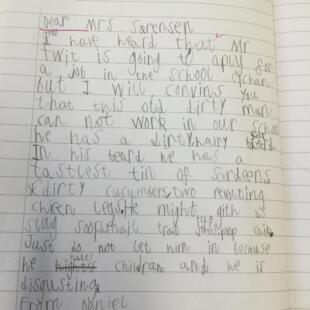 Dear Mrs Sorensen
I have heard that Mr
Twit is going to aply for
a job in the school
but I will convins you
that this old dirty man
can not work in our school
he has a dirty hairy
In his beard he has a
tastlest tin of sardeens
dirty cucumbers, two revolting
chiken legs. He might gith us
slug soop, snail trail
Just do not let him in because
he hates children and he is
disgusting.
From Daniel